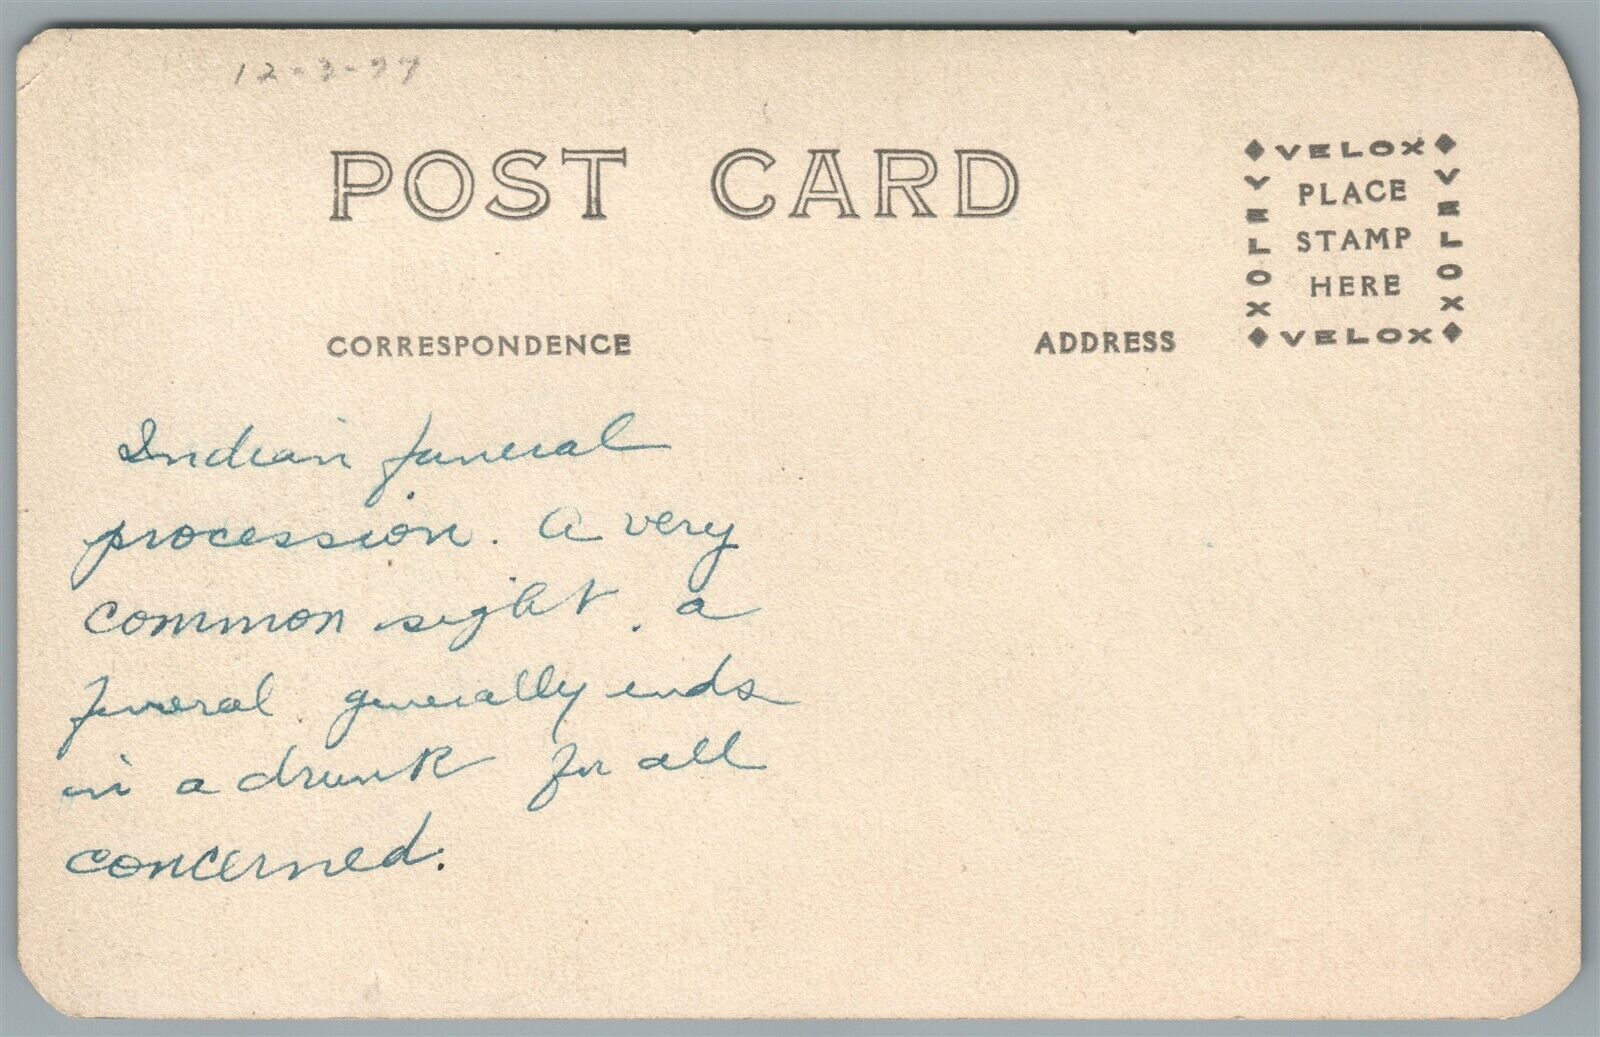 12-3-77
POST CARD
VELOX
VELOX PLACE VELOX
STAMP
HERE
VELOX
CORRESPONDENCE ADDRESS
Indian funeral
procession. A very
common sight. a
funeral generally ends
in a drunk for all
concerned.